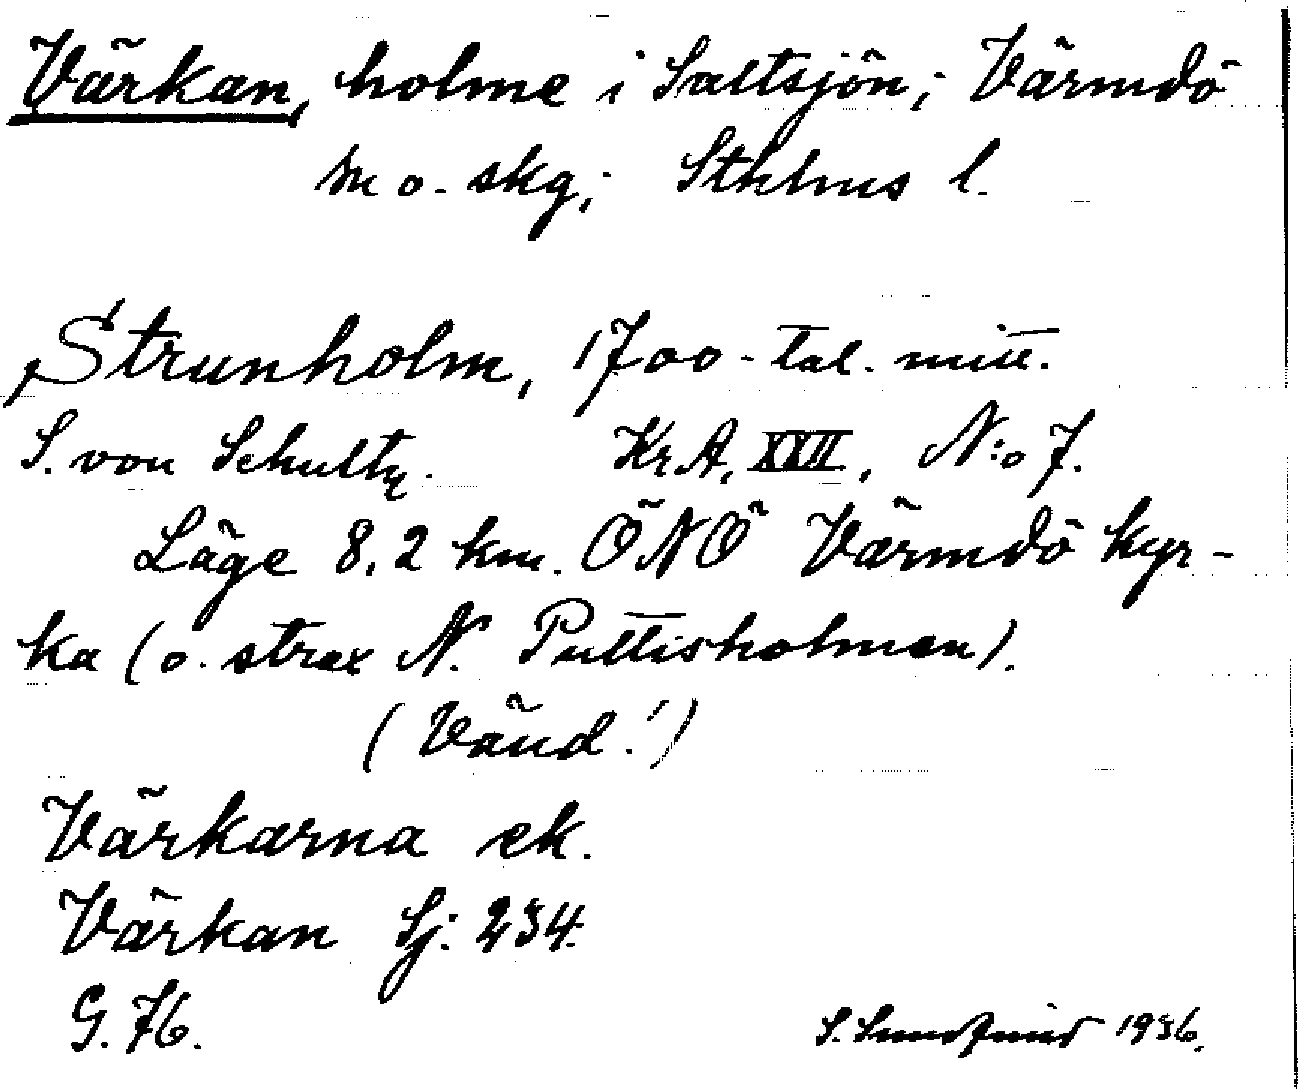 Värkan, holme i Saltsjön; Värmdö
sn o. skg; Sthlms l.
Strunholm, 1700-tal. mitt.
S. von Schultz. KrA, XXII, N:o 7.
Läge 8,2 km. ÖNÖ Värmdö kyr-
ka (o. strax N. Puttisholmen).
(Vänd!)
Värkarna ek.
Värkan Sj. 234.
G. 76.
S. 1936.